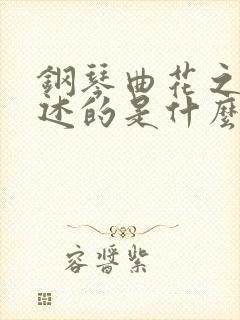 鋼琴曲花之
述的是什麼
容醬紫